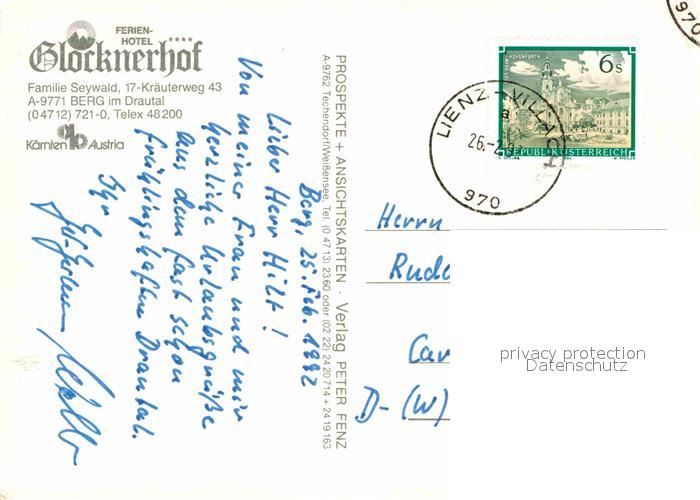 FERIEN-
HOTEL ****
Glocknerhof
Familie Seywald, 17-Kräuterweg 43
A-9771 BERG im Drautal
(0 47 12) 721-0, Telex 48 200
Kärnten Austria
Berg, 25. Feb. 1992
Lieber Herr Hilt!
Von meiner Frau und mir
herzliche Urlaubsgrüße
aus dem fast schon
frühlingshaften Drautal.
Ihr
PROSPEKTE + ANSICHTSKARTEN · Verlag PETER FENZ
A-9762 Techendorf/Weißensee, Tel. (0 47 13) 23 60 oder (02 22) 24 20 714 + 24 19 163
6 S
REPUBLIK ÖSTERREICH
LIENZ - VILLACH
a
26.-2.
970
970
Herrn
Rude
Car
D- (W)
privacy protection
Datenschutz